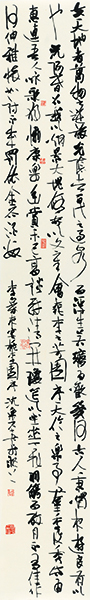 夫天地者萬物之逆旅也光陰者百代之過客也而浮生若夢為歡幾何古人秉燭夜遊良有以
也況陽春召我以煙景大塊假我以文章會桃花之芳園序天倫之樂事群季俊秀皆為
惠連吾人詠歌獨慚康樂幽賞未已高談轉清開瓊筵以坐花飛羽觴而醉月不有佳作
何伸雅懷如詩不成罰依金谷酒數 李白春夜宴桃李園序